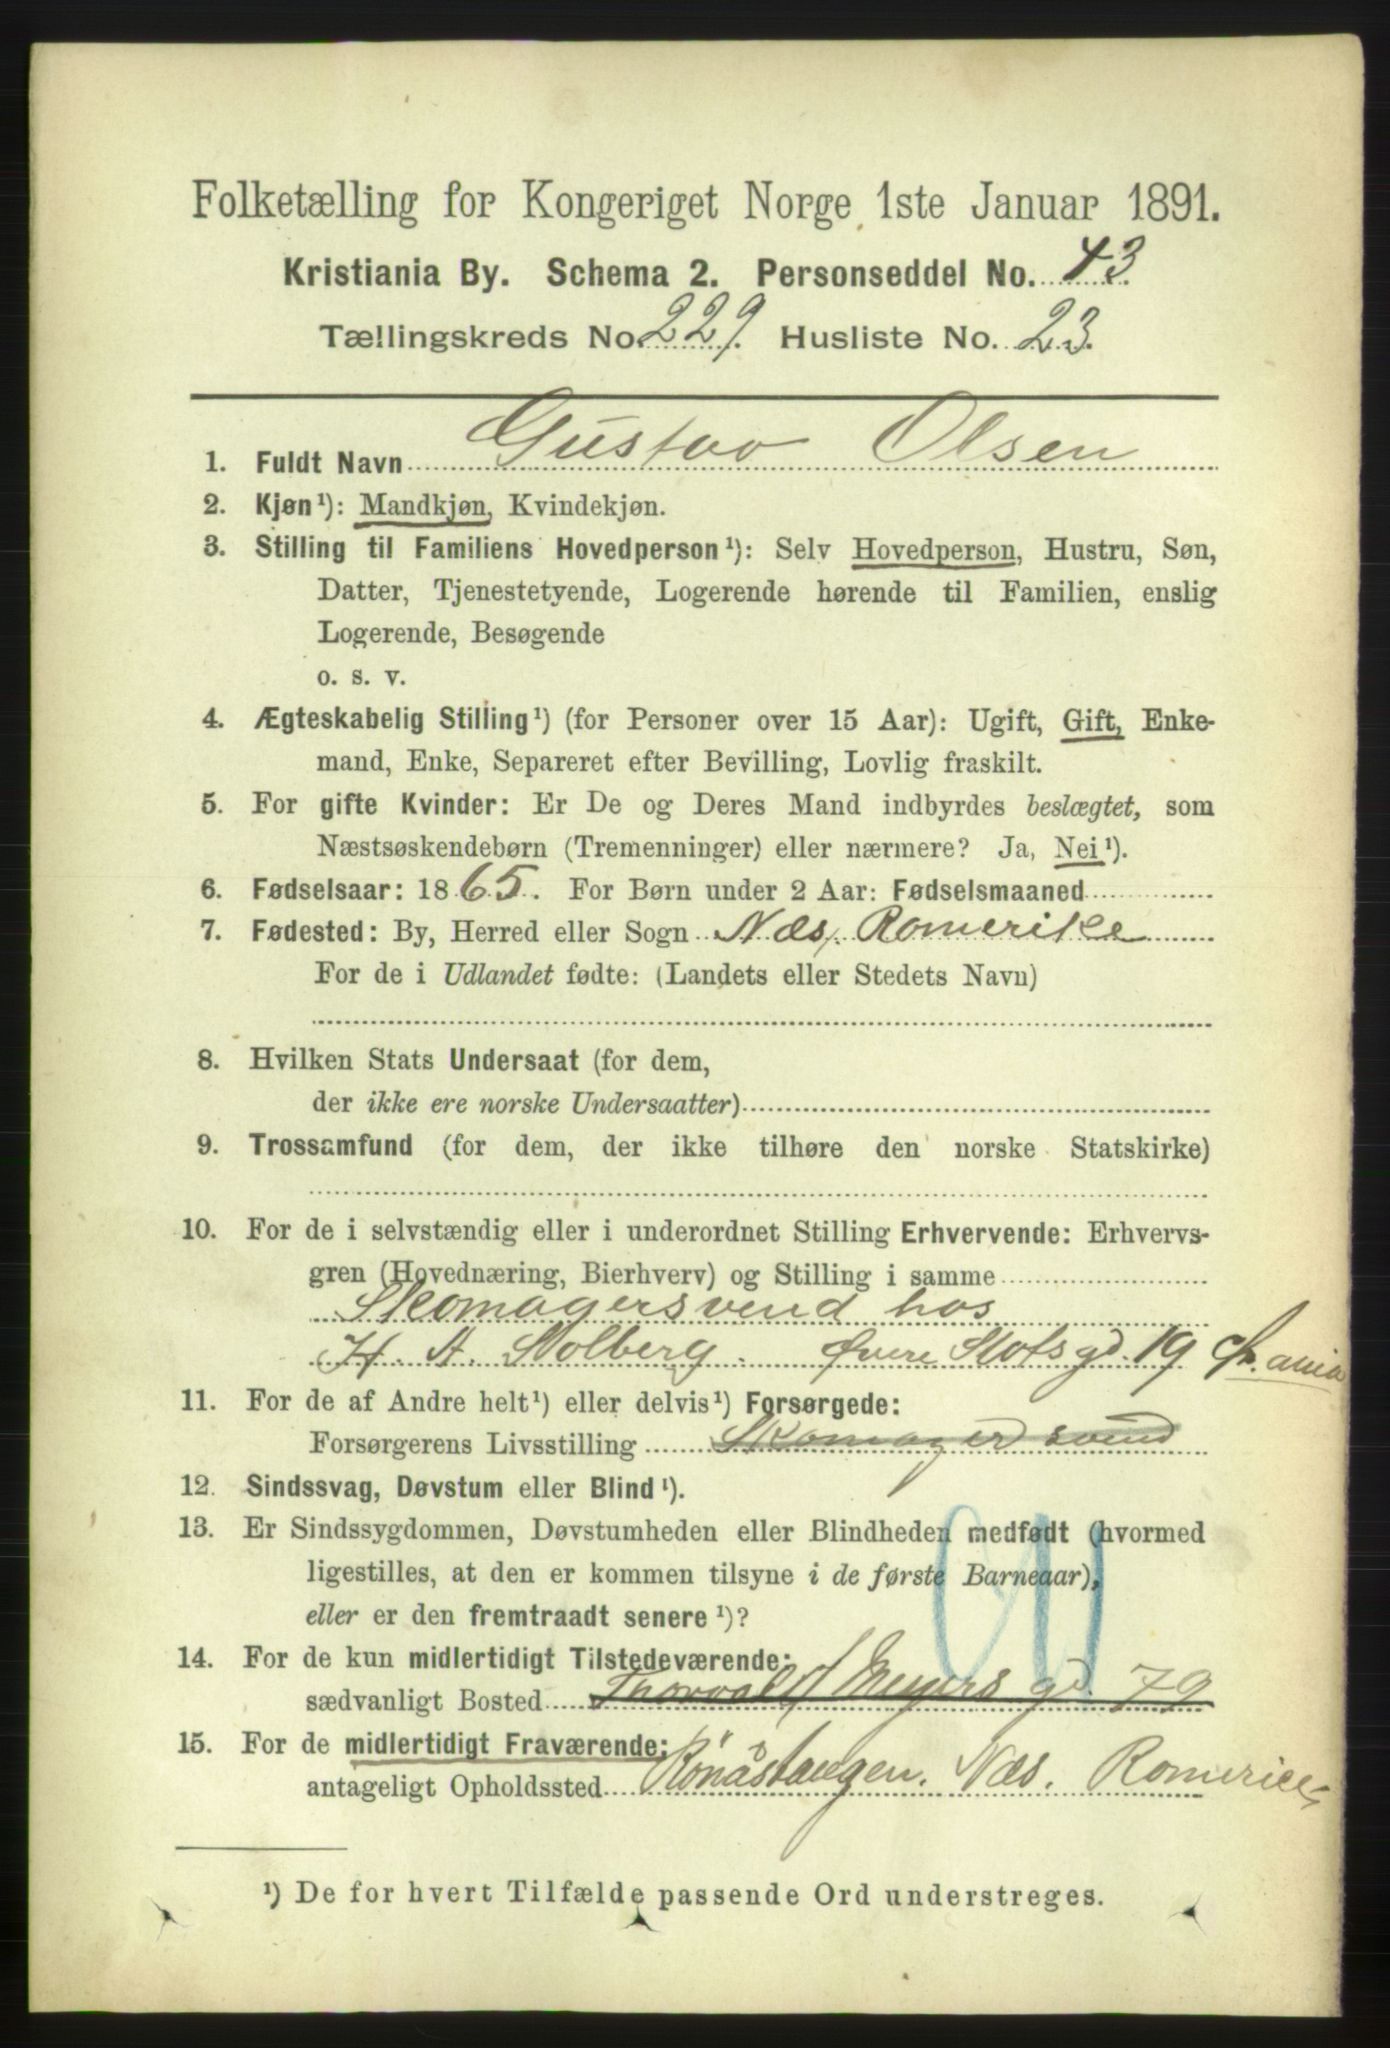 Folketælling for Kongeriget Norge 1ste Januar 1891.
Kristiania By. Schema 2. Personseddel No. 43
Tællingskreds No. 229. Husliste No. 23.
1. Fuldt Navn Gustav Olsen
2. Kjøn¹): Mandkjøn, Kvindekjøn.
3. Stilling til Familiens Hovedperson¹): Selv Hovedperson, Hustru, Søn,
Datter, Tjenestetyende, Logerende hørende til Familien, enslig
Logerende, Besøgende
o. s. v.
4. Ægteskabelig Stilling¹) (for Personer over 15 Aar): Ugift, Gift, Enke-
mand, Enke, Separeret efter Bevilling, Lovlig fraskilt.
5. For gifte Kvinder: Er De og Deres Mand indbyrdes beslægtet, som
Næstsøskendebørn (Tremenninger) eller nærmere? Ja, Nei¹).
6. Fødselsaar: 1865. For Børn under 2 Aar: Fødselsmaaned
7. Fødested: By, Herred eller Sogn Næs, Romerike
For de i Udlandet fødte: (Landets eller Stedets Navn)
8. Hvilken Stats Undersaat (for dem,
der ikke ere norske Undersaatter)
9. Trossamfund (for dem, der ikke tilhøre den norske Statskirke)
10. For de i selvstændig eller i underordnet Stilling Erhvervende: Erhvervs-
gren (Hovednæring, Bierhverv) og Stilling i samme
Skomagersvend hos
H. A. Stolberg. Øvere Slotsgd. 19 Chr.ania
11. For de af Andre helt¹) eller delvis¹) Forsørgede:
Forsørgerens Livsstilling Skomagersvend
12. Sindssvag, Døvstum eller Blind¹).
13. Er Sindssygdommen, Døvstumheden eller Blindheden medfødt (hvormed
ligestilles, at den er kommen tilsyne i de første Barneaar),
eller er den fremtraadt senere¹)?
14. For de kun midlertidigt Tilstedeværende:
sædvanligt Bosted Thorvald Meyers gd. 79
15. For de midlertidigt Fraværende:
antageligt Opholdssted Rønåstangen. Næs. Romerike
¹) De for hvert Tilfælde passende Ord understreges.